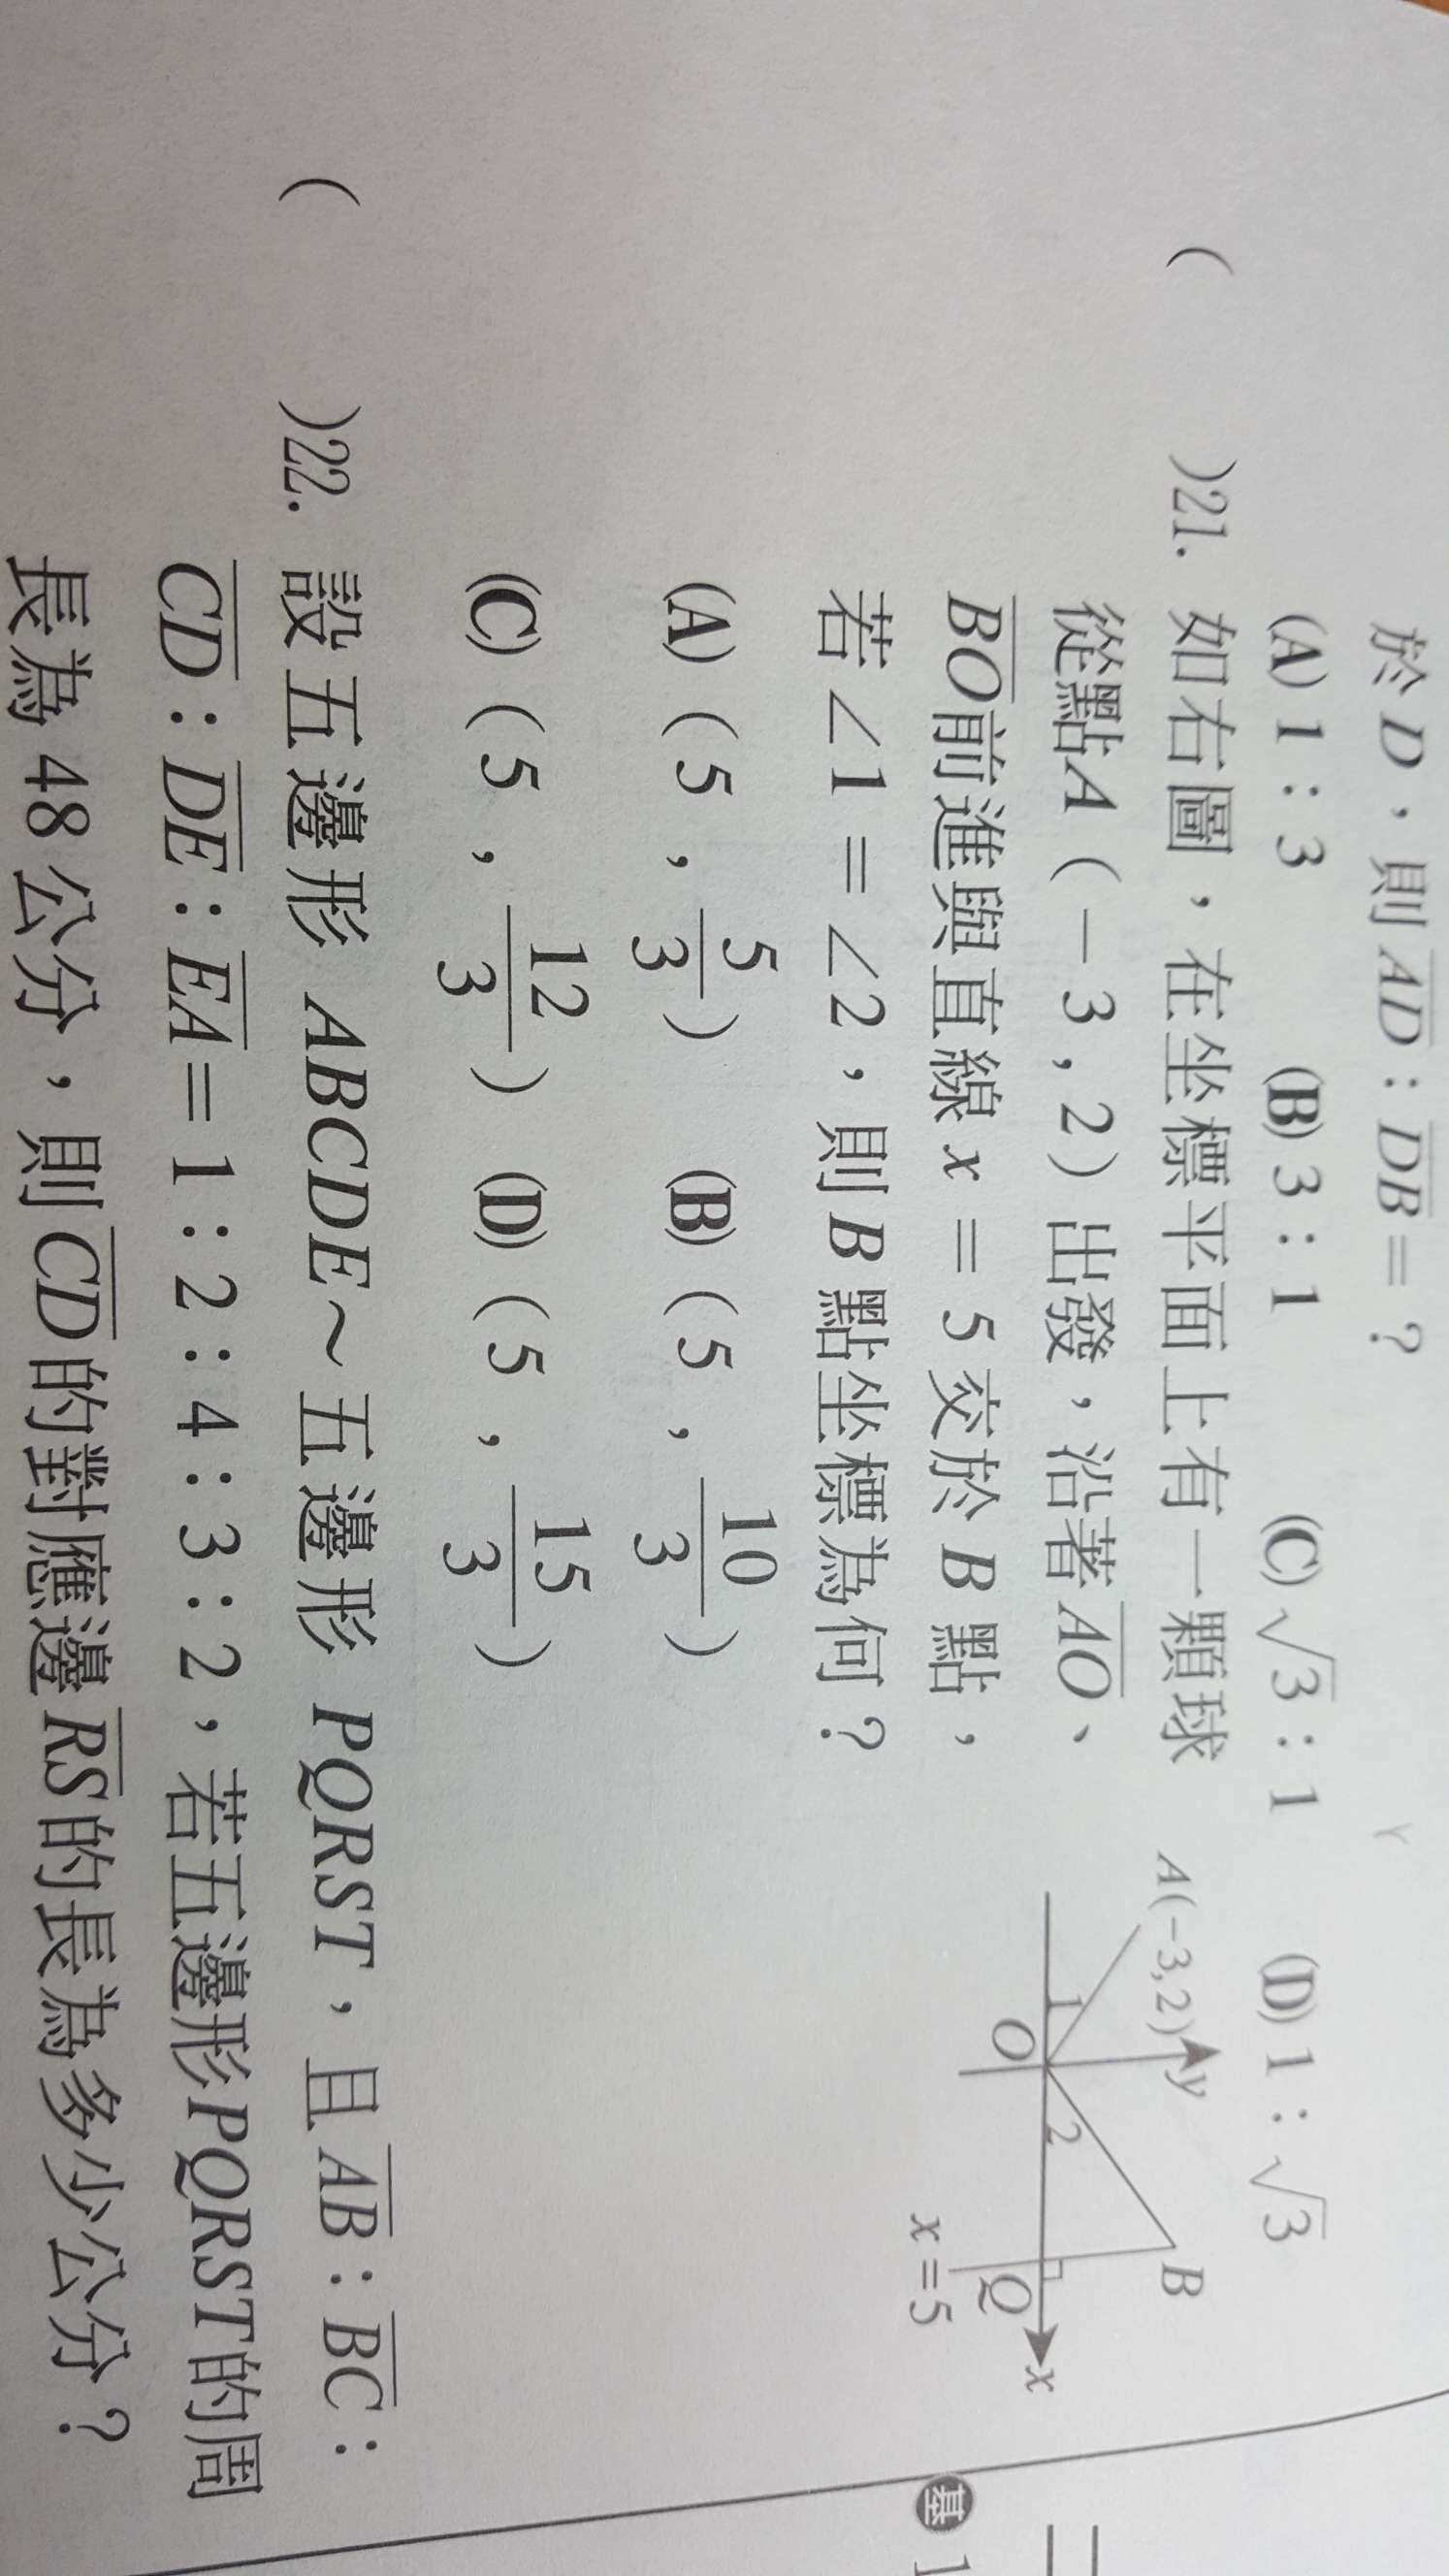 於 D，則 AD：DB＝？
(A) 1：3 (B) 3：1 (C) √3：1 (D) 1：√3
( )21. 如右圖，在坐標平面上有一顆球
從點A（－3，2）出發，沿著AO、
BO前進與直線 x ＝ 5 交於 B 點，
若∠1 ＝ ∠2，則 B 點坐標為何？
(A)（5，5/3） (B)（5，10/3）
(C)（5，12/3） (D)（5，15/3）
A(−3,2)
y
B
1
2
O
Q
x
x＝5
( )22. 設五邊形 ABCDE～五邊形 PQRST，且AB：BC：
CD：DE：EA＝1：2：4：3：2，若五邊形PQRST的周
長為 48 公分，則CD的對應邊RS的長為多少公分？
基 1